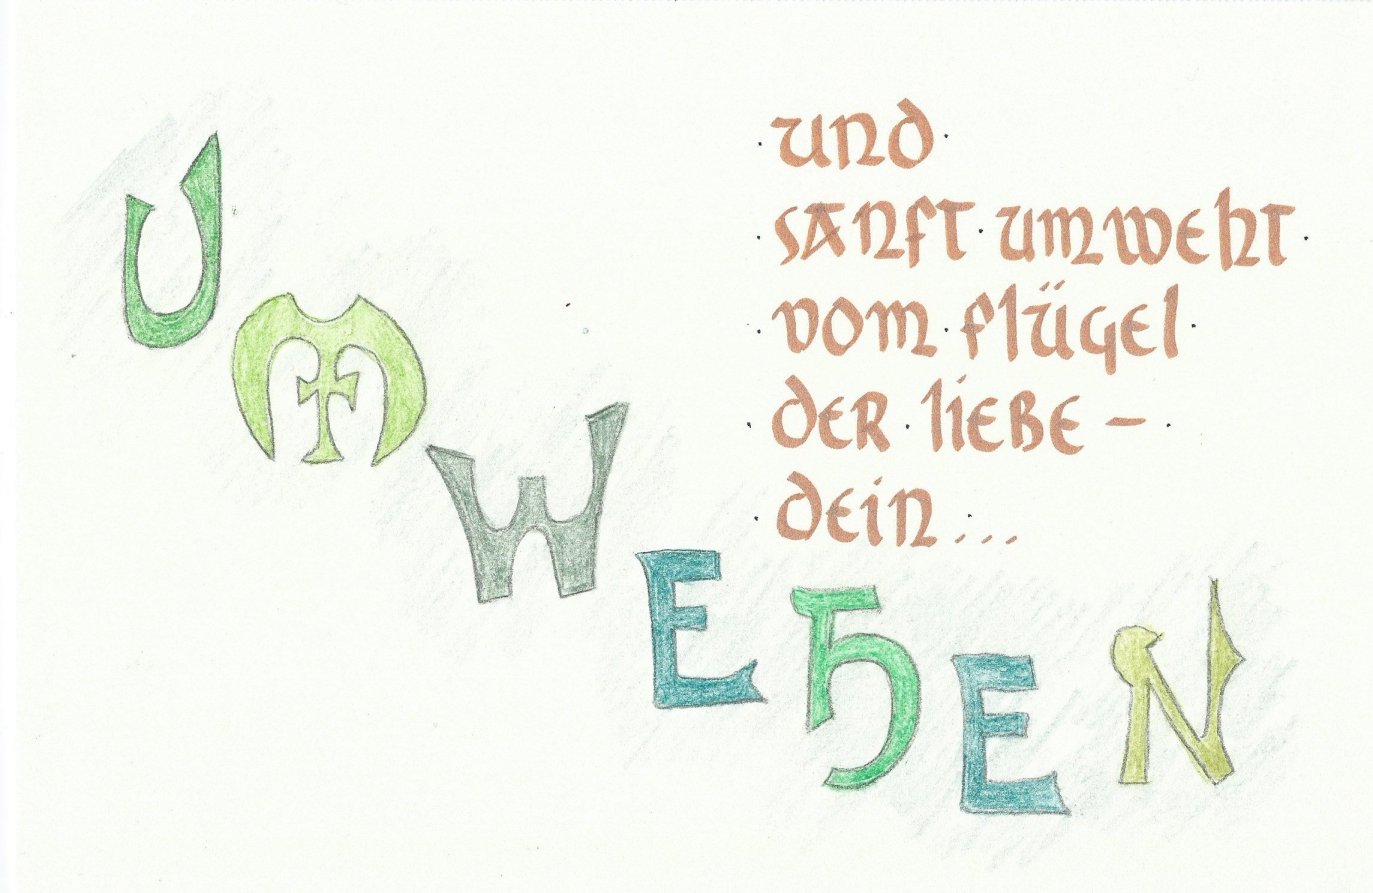 UMWEHEN
und
sanft umweht
vom flügel
der liebe –
dein...